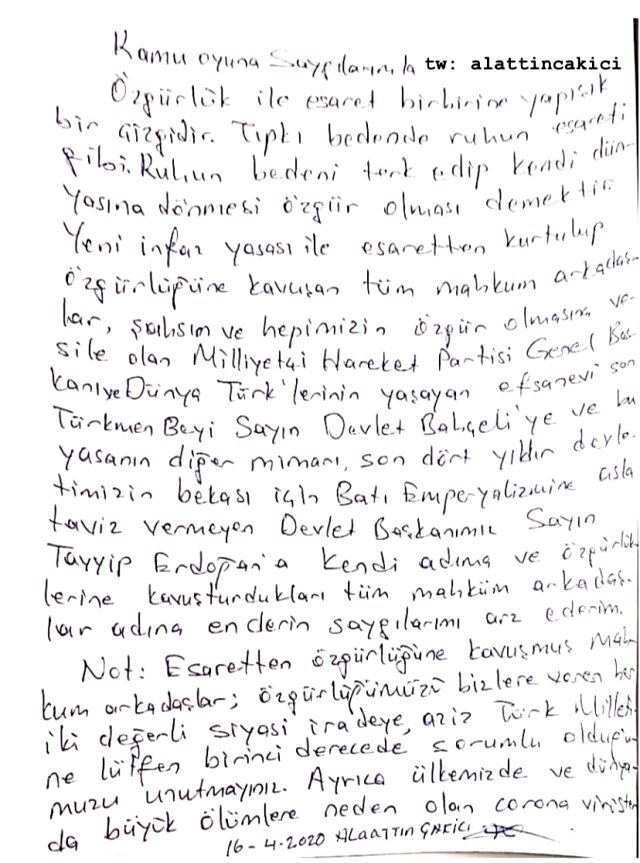 Kamu oyuna Saygılarımla tw: alattincakici
Özgürlük ile esaret birbirine yapışık
bir çizgidir. Tıpkı bedende ruhun esareti
gibi. Ruhun bedeni terk edip kendi dün-
yasına dönmesi özgür olması demektir.
Yeni infaz yasası ile esaretten kurtulup
özgürlüğüne kavuşan tüm mahkum arkadaş-
lar, şahsım ve hepimizin özgür olmasına ve-
sile olan Milliyetçi Hareket Partisi Genel Baş-
kanı ve Dünya Türk'lerinin yaşayan efsanevi son
Türkmen Beyi Sayın Devlet Bahçeli'ye ve bu
yasanın diğer mimarı, son dört yıldır devle-
timizin bekası için Batı Emperyalizmine asla
taviz vermeyen Devlet Başkanımız Sayın
Tayyip Erdoğan'a kendi adıma ve özgürlük-
lerine kavuşturdukları tüm mahkûm arkadaş-
lar adına en derin saygılarımı arz ederim.
Not: Esaretten özgürlüğüne kavuşmuş mah-
kum arkadaşlar; özgürlüğümüzü bizlere veren her
iki değerli siyasi iradeye, aziz Türk Milleti-
ne lütfen birinci derecede sorumlu olduğu-
muzu unutmayınız. Ayrıca ülkemizde ve dünya-
da büyük ölümlere neden olan corona virüsten
16-4-2020 ALAATTİN ÇAKICI